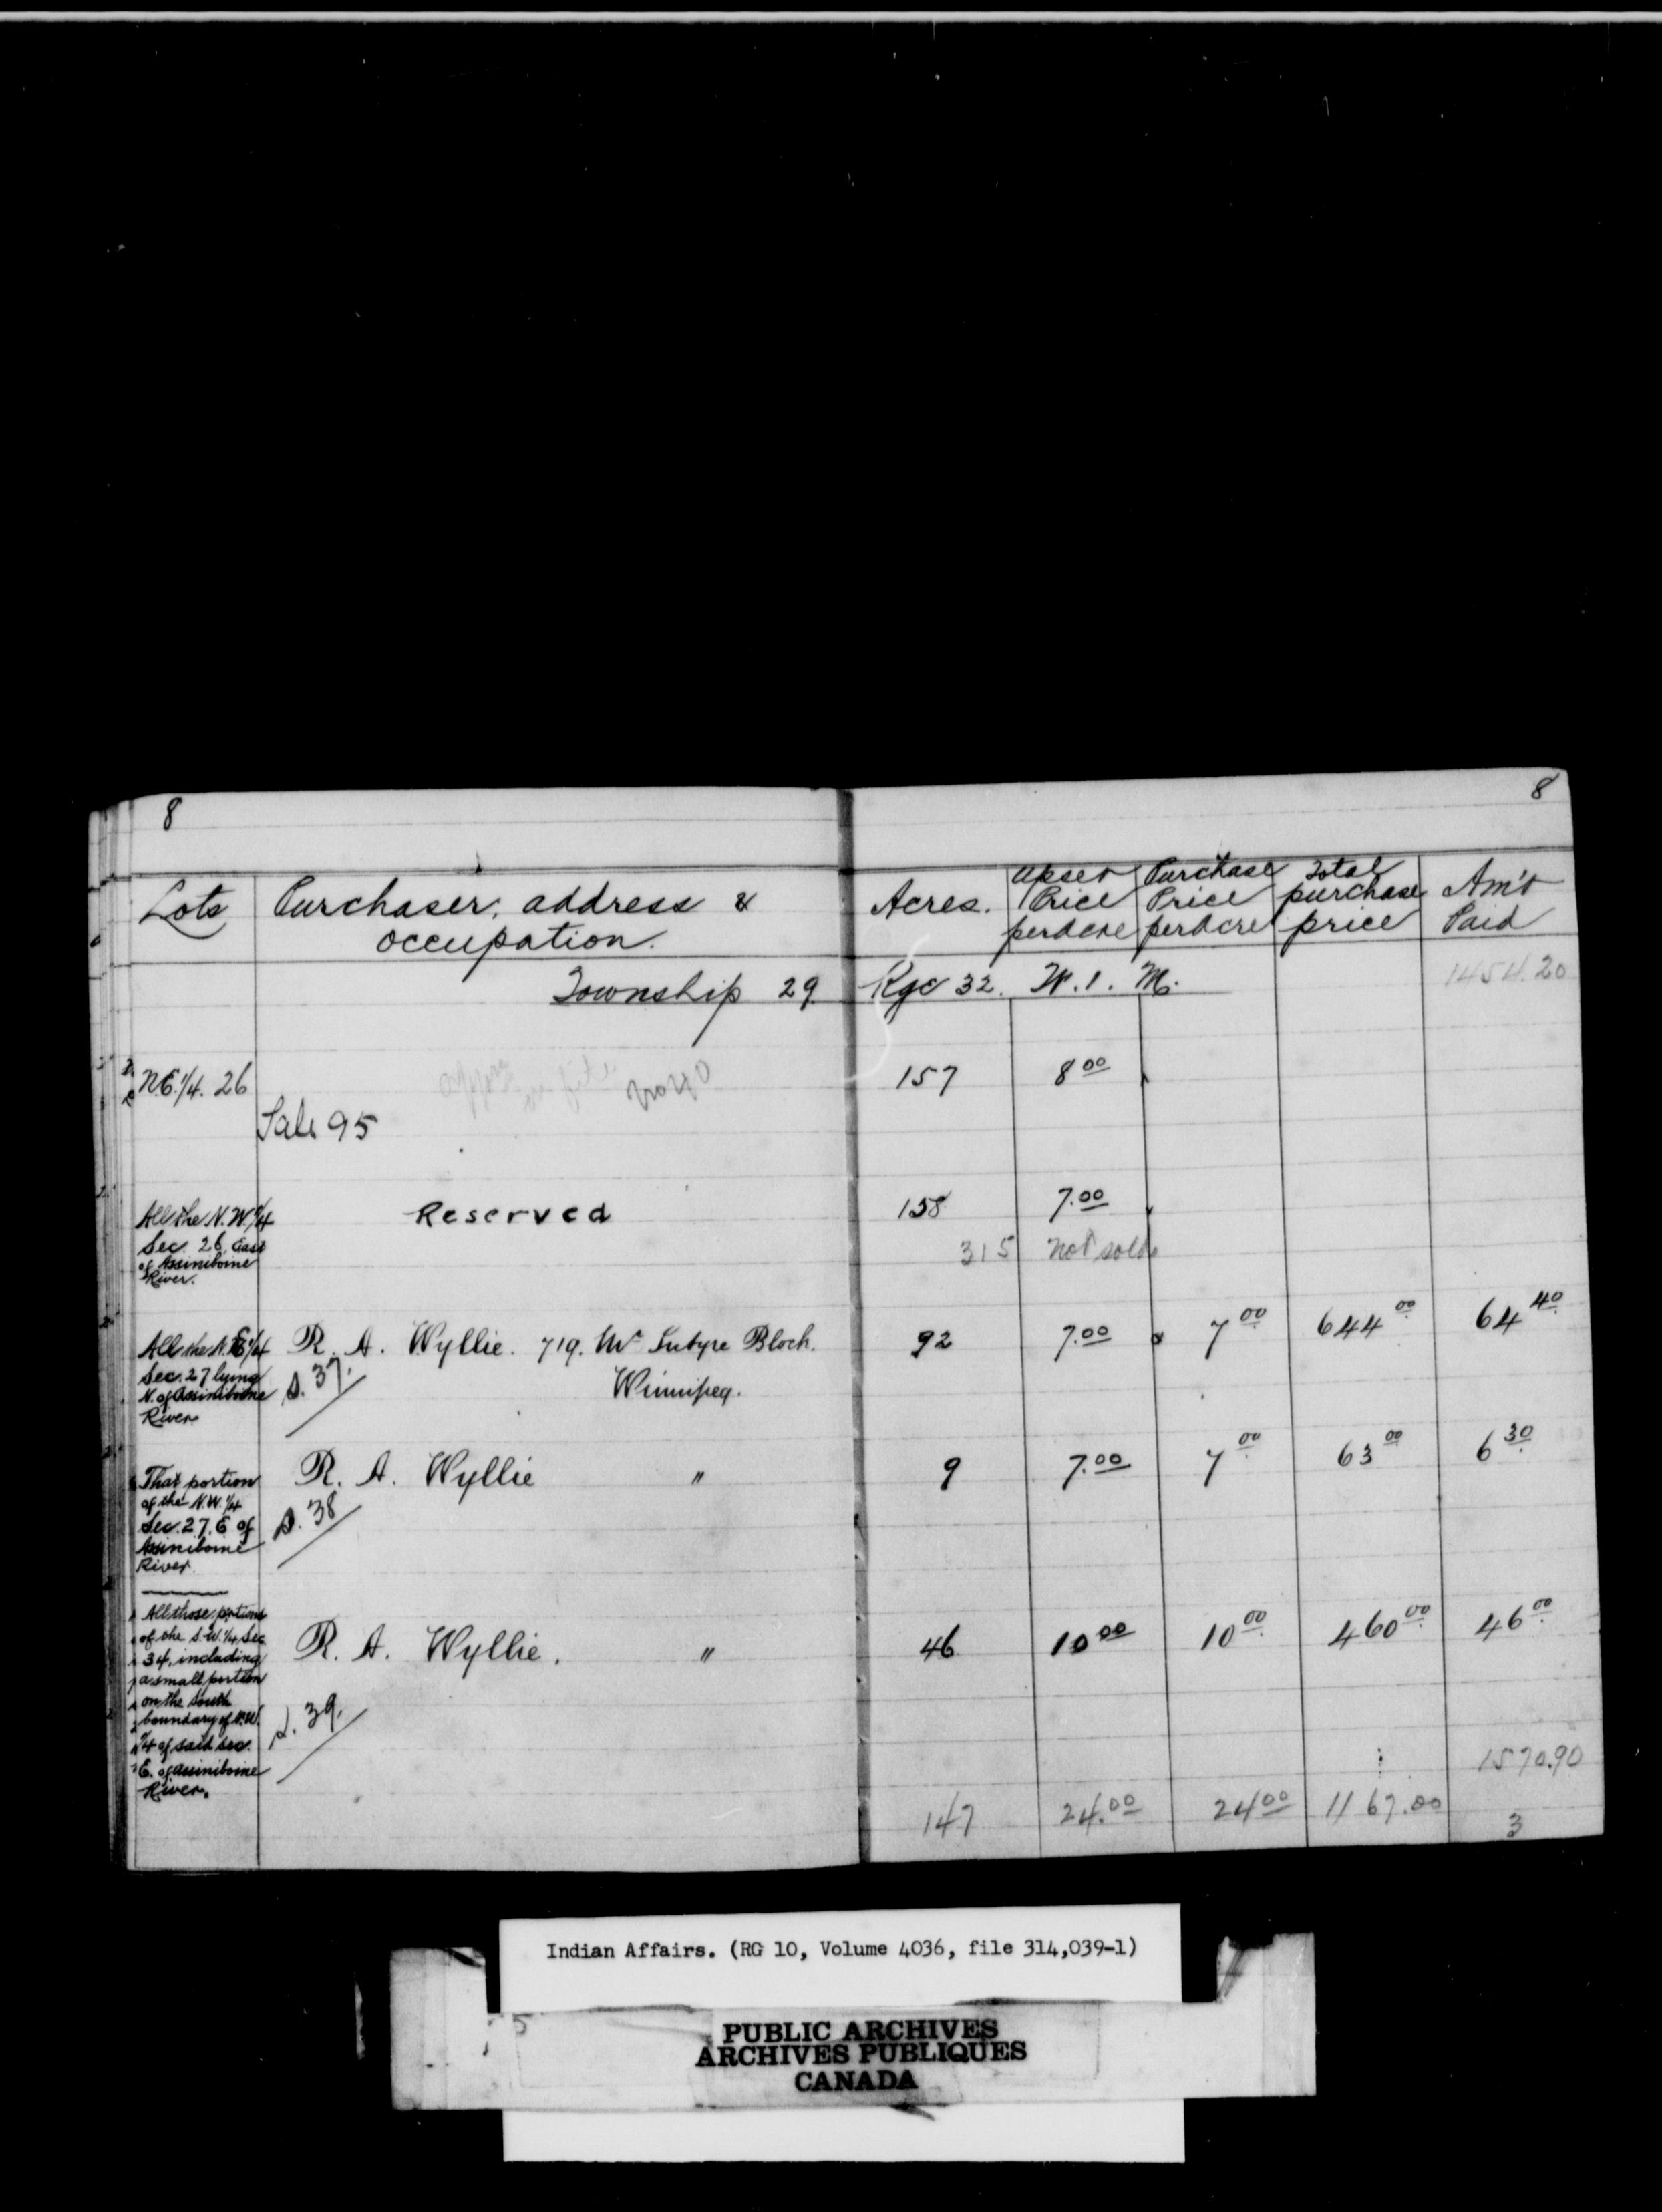 8
8
Lots
Purchaser, address &
occupation.
Acres.
Upset
Price
per Acre
Purchase
Price
per Acre
Total
purchase
price
Am't
Paid
Township 29. Rge 32. W. 1. M.
1454.20
N.E. 1/4. 26
157
8 00
Sale 95
All the N.W. 1/4
Sec. 26, East
of Assiniboine
River.
Reserved
158
7.00
315 not sold
All the N.E. 1/4
Sec. 27 lying
N. of Assiniboine
River
R. A. Wyllie. 719. Mc Intyre Block.
Winnipeg.
S. 37.
92
7.00
7 00
644 00
64 40
That portion
of the N.W. 1/4
Sec. 27. E of
Assiniboine
River.
R. A. Wyllie "
S. 38
9
7.00
7 00
63 00
6 30
All those portions
of the S.W. 1/4 Sec
34, including
a small portion
on the South
boundary of N.W.
1/4 of said sec.
E. of Assiniboine
River.
R. A. Wyllie. "
S. 39.
46
10 00
10 00
460 00
46 00
1570.90
147
24.00
24 00
1167.00
3
Indian Affairs. (RG 10, Volume 4036, file 314,039-1)
PUBLIC ARCHIVES
ARCHIVES PUBLIQUES
CANADA